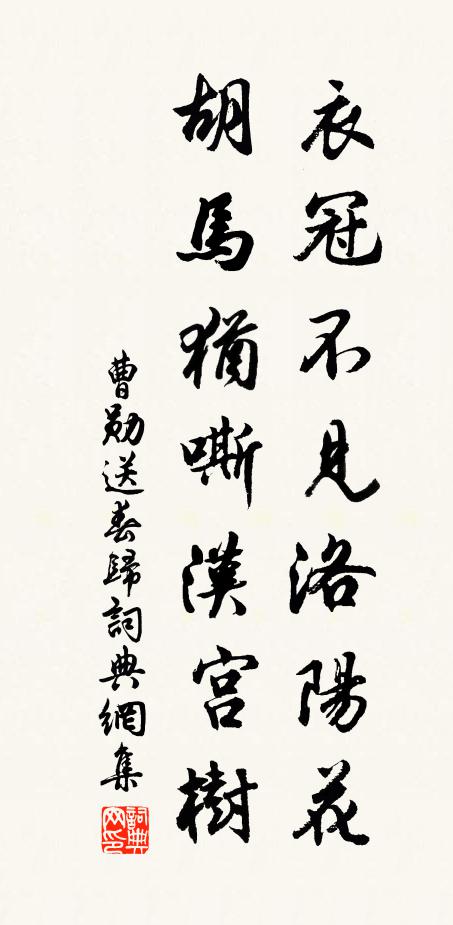 衣冠不見洛陽花
胡馬猶嘶漢宮樹
曹勛送春歸詞典網集
詞典
网印